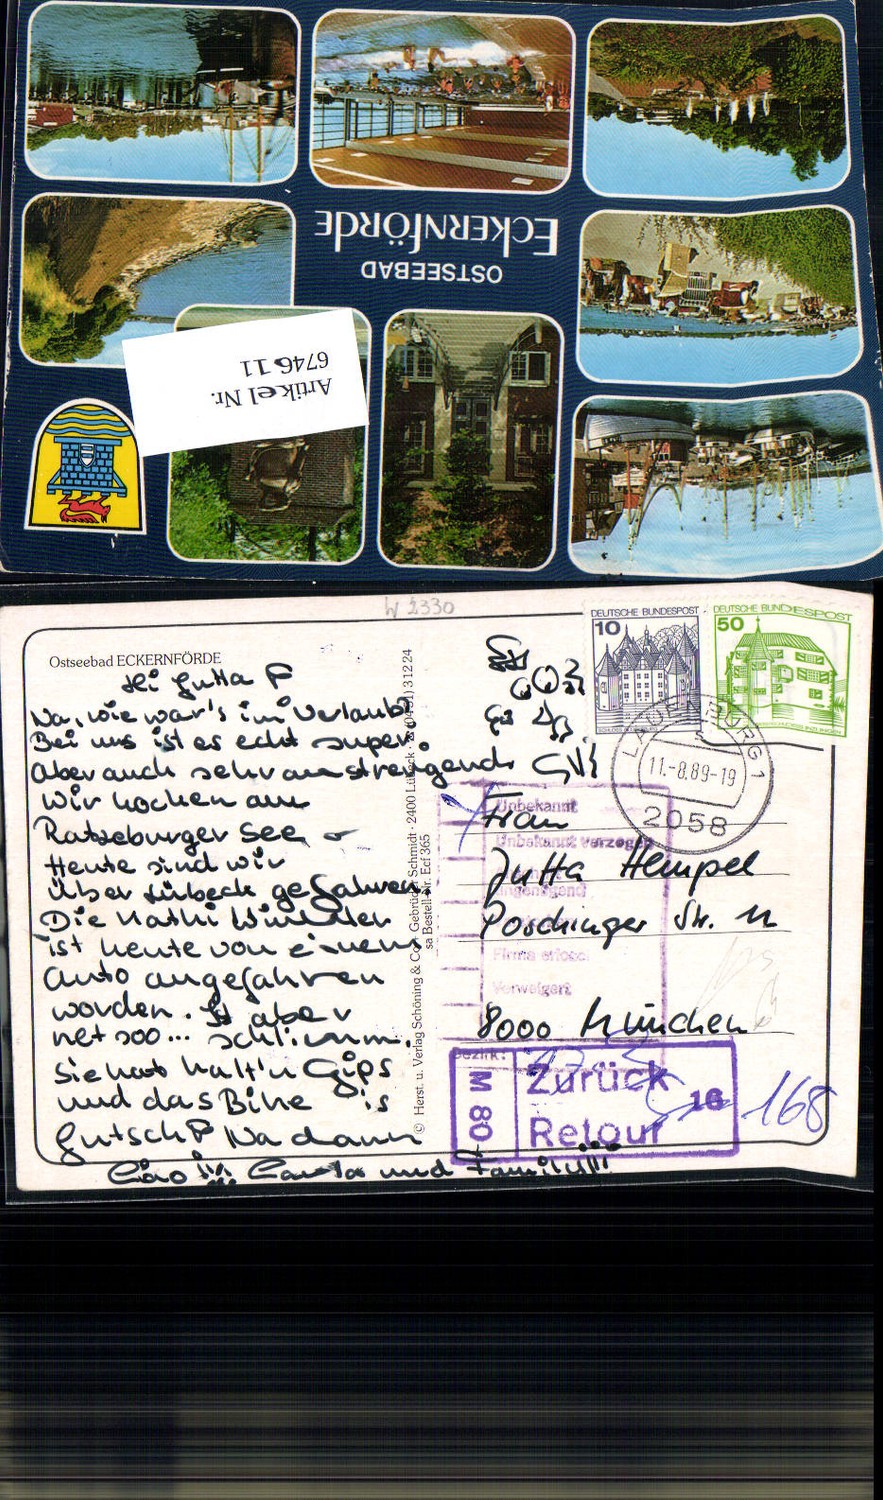 OSTSEEBAD
ECKERNFÖRDE
Artikel Nr.
6746 11
W 2330
Ostseebad ECKERNFÖRDE
Hi Jutta
Na, wie war's im Urlaub?
Bei uns ist es echt super.
Aber auch sehr anstrengend.
Wir hocken am
Ratzeburger See
Heute sind wir
über Lübeck gefahren.
Die Kathi
ist heute von einem
Auto angefahren
worden. Ist aber
net sooo... schlimm.
Sie hat halt'n Gips
und das Bike is
futsch Na dann
Ciao !!! und Family!!!
© Herst. u. Verlag Schöning & Co · Gebrüder Schmidt · 2400 Lübeck · 31224
sa Bestell-Nr. Ecf 365
DEUTSCHE BUNDESPOST
10
DEUTSCHE BUNDESPOST
50
LAUENBURG 1
11.-8.89-19
2058
Unbekannt
Unbekannt verzogen
Firma erlosch
Verweigert
Bezirk:
Frau
Jutta Hempel
Poschinger Str. 11
8000 München
M 80
Zurück
Retour
16
168